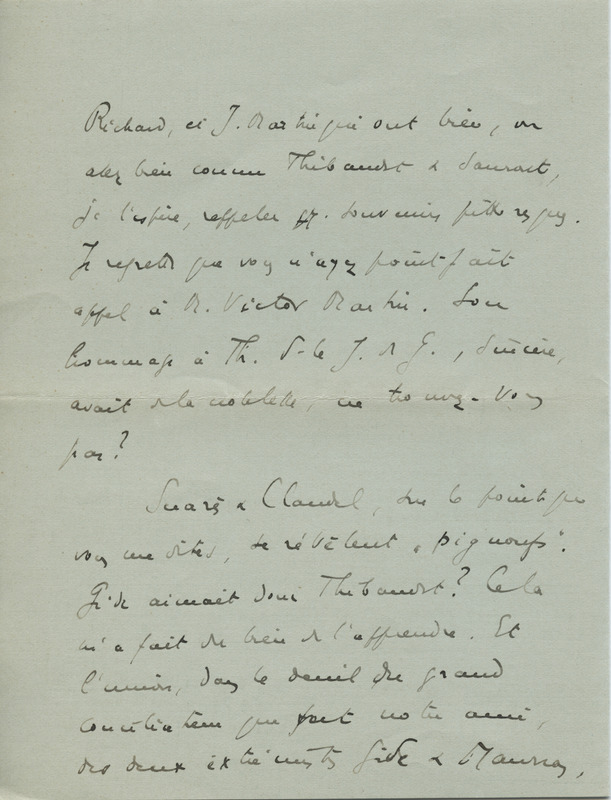 Richard, et J. Martin qui ont bien, ou
assez bien connu Thibaudet & sauront,
je l'espère, rappeler souvenirs pittoresques.
Je regrette que vous n'ayez point fait
appel à M. Victor Martin. Son
hommage à Th. d- le J. de G., sincère,
avait de la noblesse, ne trouvez-vous
pas?
Suarès & Claudel, sur le point que
vous me dites, se révèlent "pignoufs".
Gide aimait donc Thibaudet? Cela
m'a fait du bien de l'apprendre. Et
l'union, dans le deuil du grand
conciliateur que fut notre ami,
des deux extrémistes Gide & Maurras,